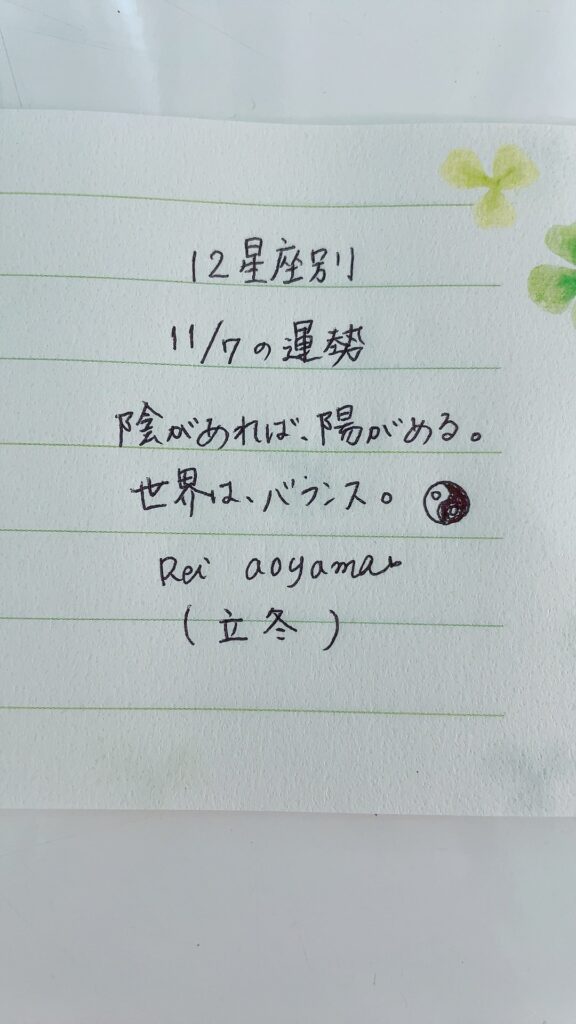 12星座別
11/7の運勢
陰があれば、陽がある。
世界は、バランス。
Rei aoyama
(立冬)